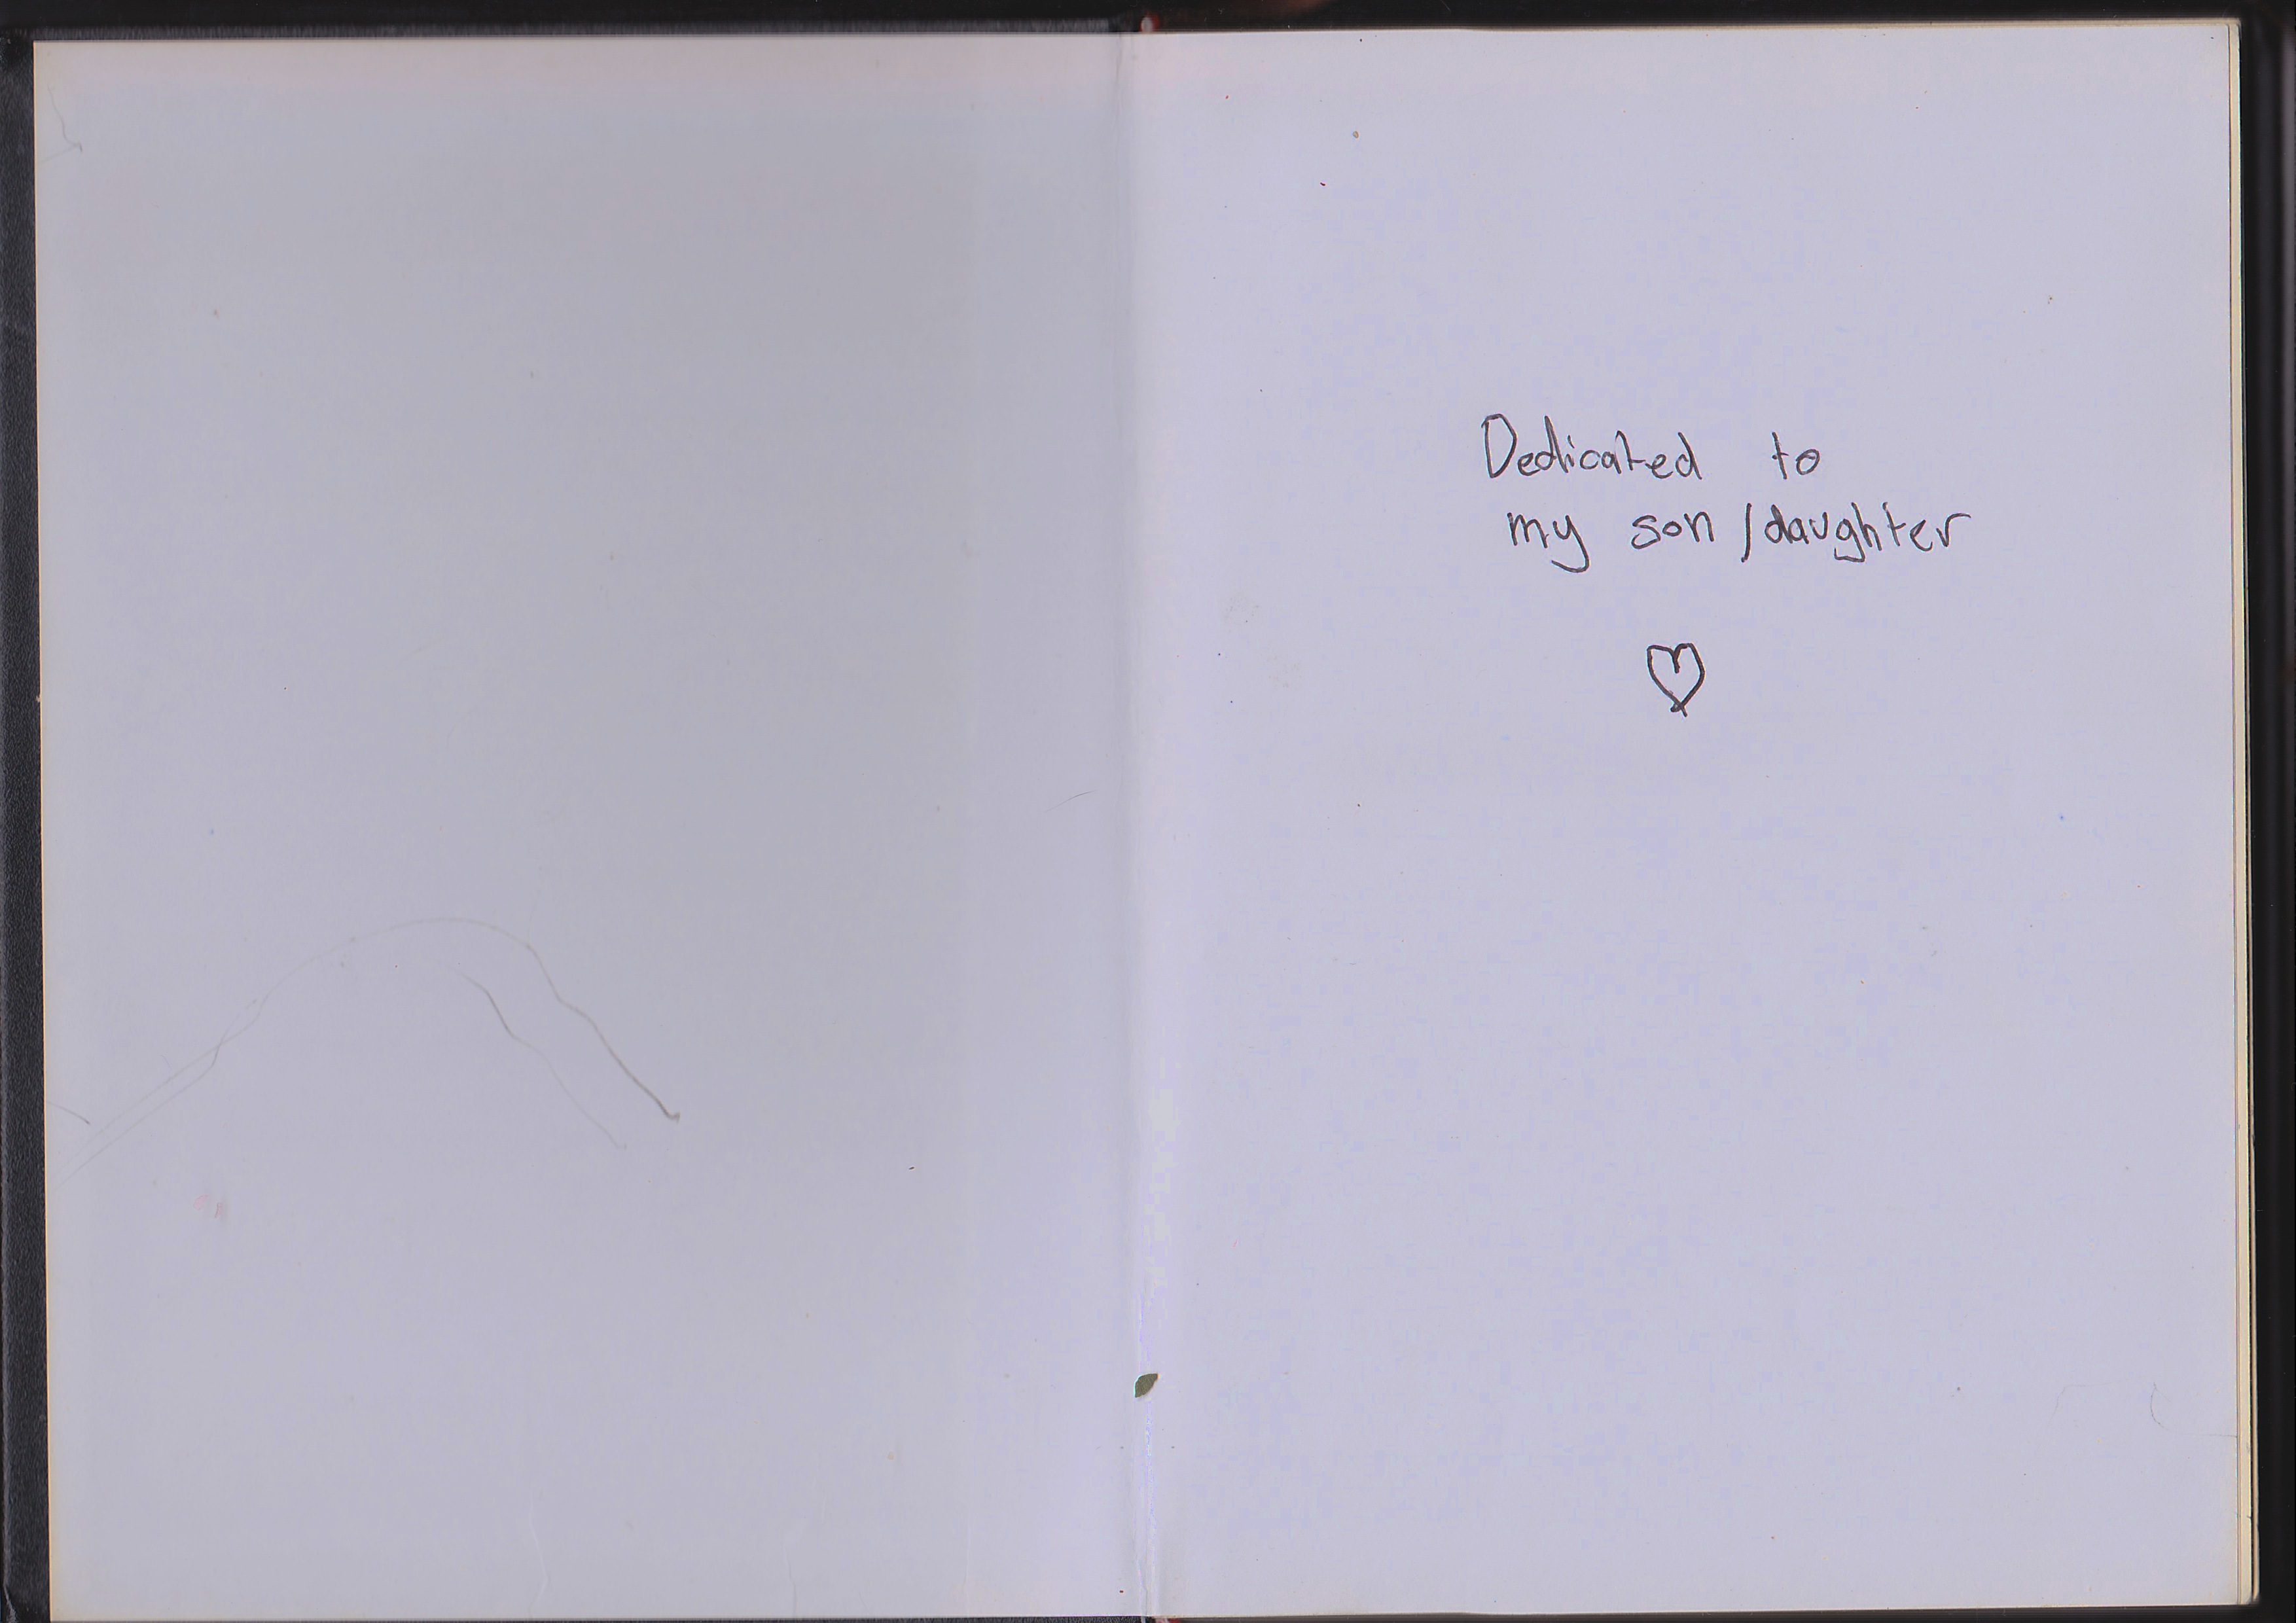 Dedicated to
my son/daughter
♡